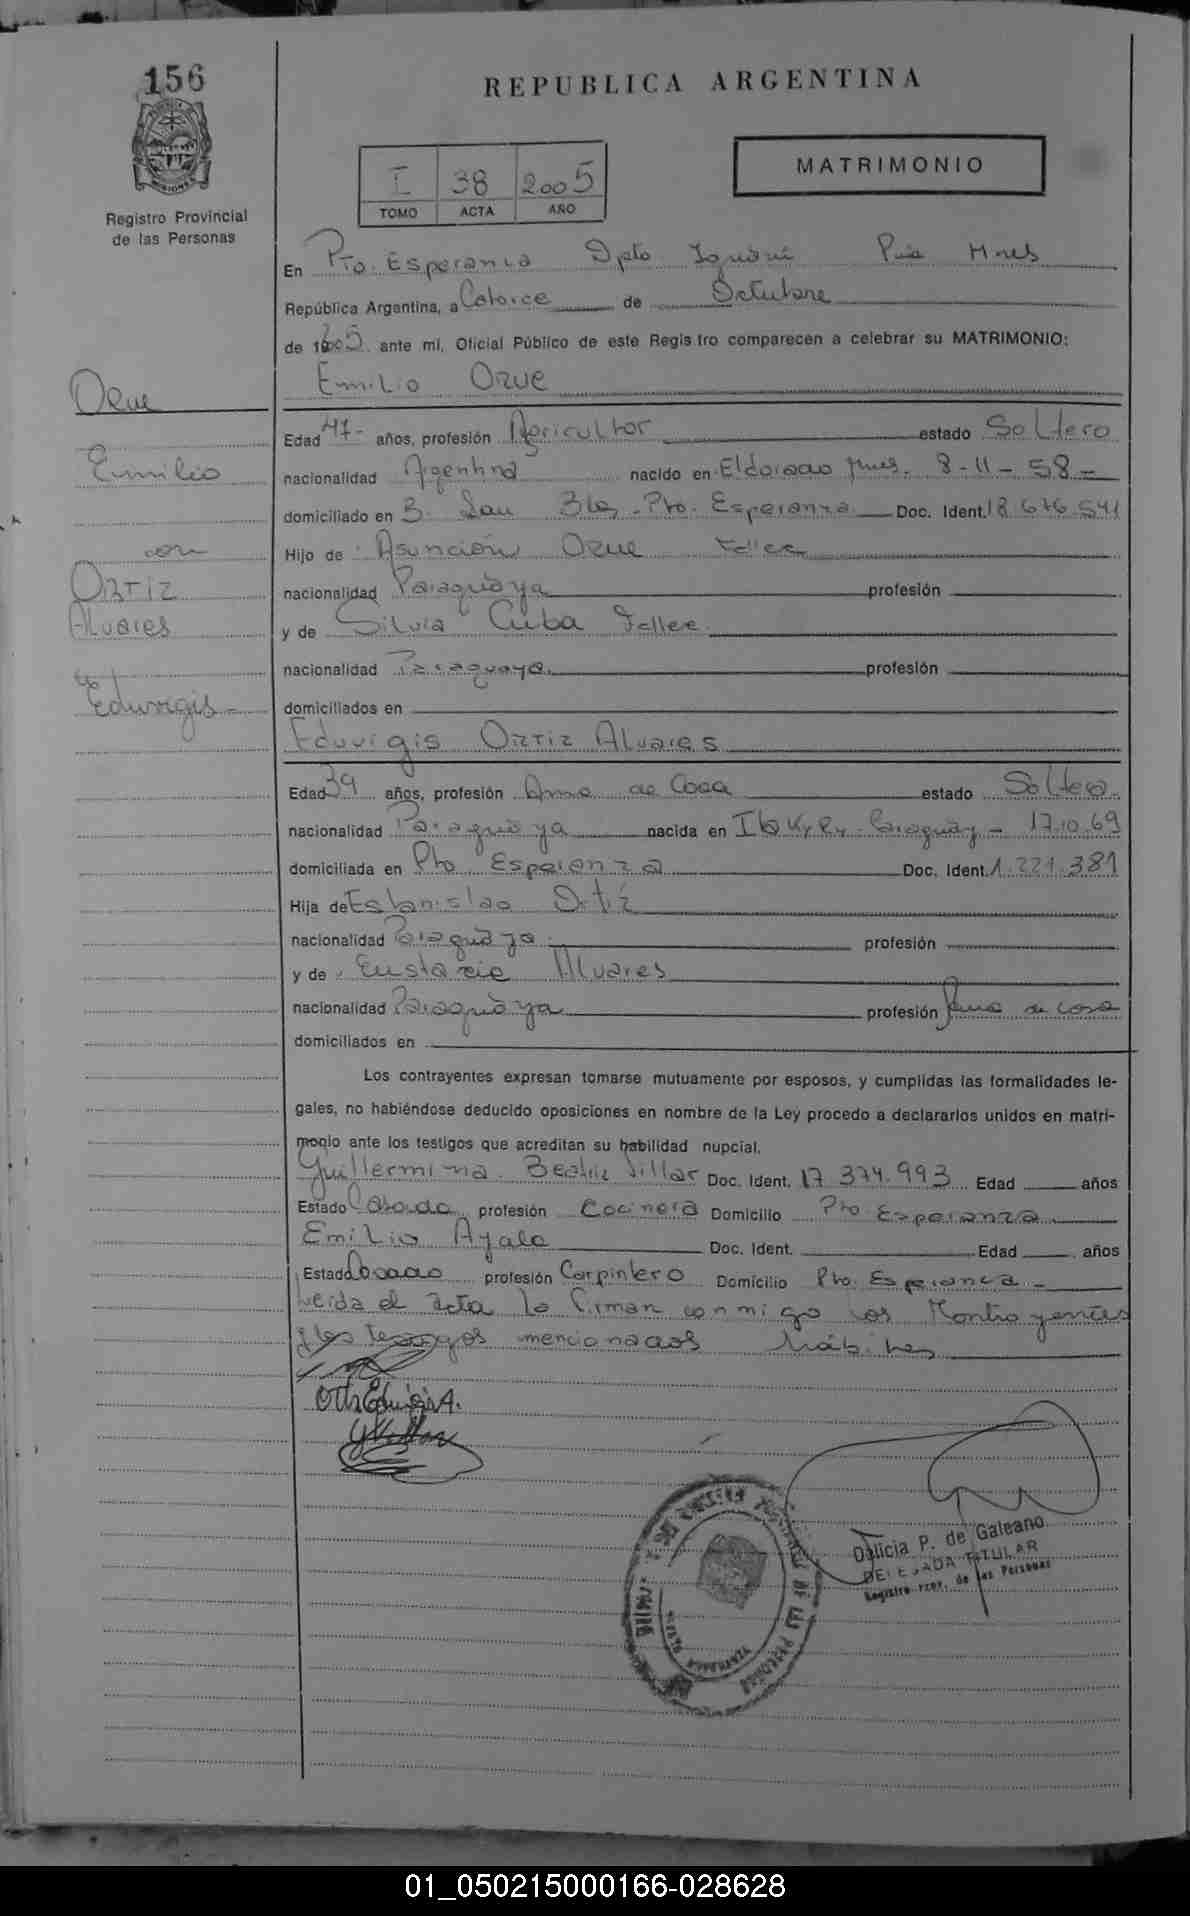 156
REPUBLICA ARGENTINA
MISIONES
Registro Provincial
de las Personas
I 38 2005
TOMO ACTA AÑO
MATRIMONIO
En Pto. Esperanza Dpto Iguazú Pcia Mnes
República Argentina, a Catorce de Octubre
de 2005 ante mí, Oficial Público de este Registro comparecen a celebrar su MATRIMONIO:
Emilio Ozue
Edad 47- años, profesión Agricultor estado Soltero
nacionalidad Argentina nacido en Eldorado Mnes. 8-11-58-
domiciliado en B. San Blas - Pto. Esperanza Doc. Ident. 18 676 541
Hijo de Asunción Ozue
nacionalidad Paraguàya profesión
y de Silvia Cuba
nacionalidad Paraguaya profesión
domiciliados en
Eduvigis Ortiz Alvares
Edad 39 años, profesión Ama de Casa estado Soltera
nacionalidad Paraguàya nacida en Itakyry - Paraguay - 17.10.69
domiciliada en Pto Esperanza Doc. Ident. 1.221.381
Hija de Estanislao Ortiz
nacionalidad Paraguàya profesión
y de Eustacie Alvares
nacionalidad Paraguàya profesión Ama de casa
domiciliados en
Los contrayentes expresan tomarse mutuamente por esposos, y cumplidas las formalidades le-
gales, no habiéndose deducido oposiciones en nombre de la Ley procedo a declararlos unidos en matri-
monio ante los testigos que acreditan su habilidad nupcial.
Guillermina Beatriz Villar Doc. Ident. 17 374.993 Edad años
Estado Casada profesión Cocinera Domicilio Pto Esperanza
Emilio Ayala Doc. Ident. Edad años
Estado Casado profesión Carpintero Domicilio Pto. Esperanza -
Leida el acta la firman conmigo los Contrayentes
y los testigos mencionados hábiles
Ozue
Emilio
con
Ortiz
Alvares
Eduvigis -
Ortiz Eduvigis A.
GVillar
Dalicia P. de Galeano
DELEGADA TITULAR
Registro Prov. de las Personas
01_050215000166-028628